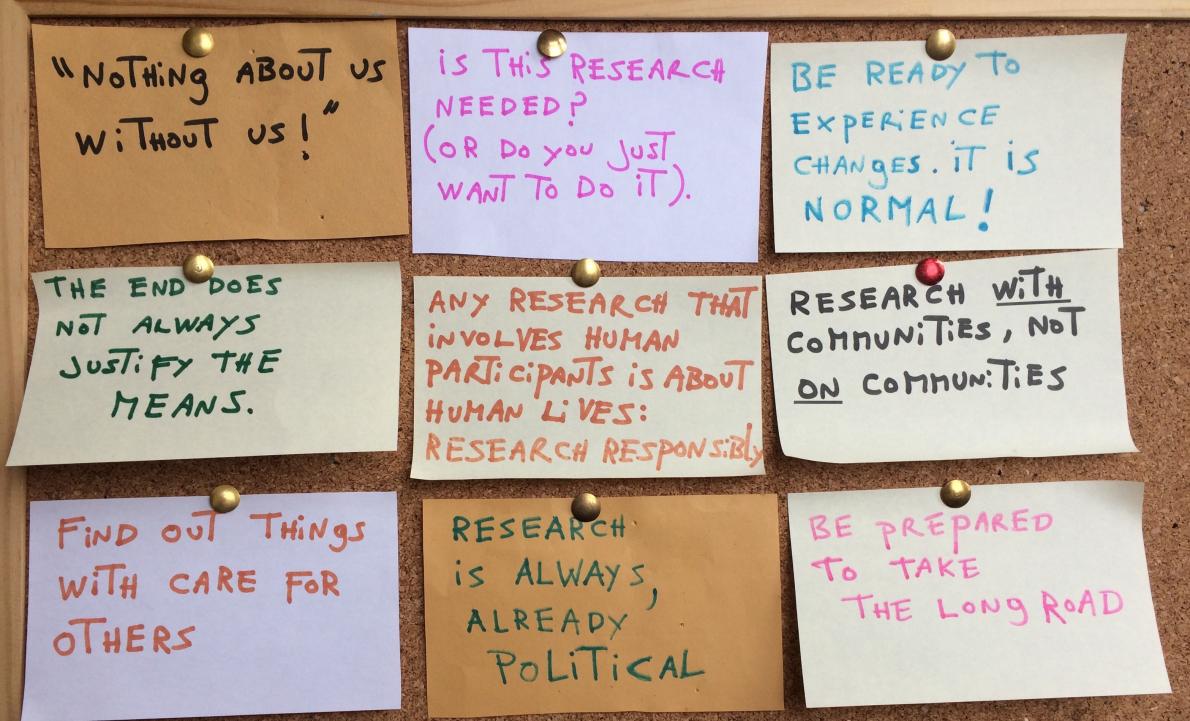 "NOTHING ABOUT US
WITHOUT US!"
IS THIS RESEARCH
NEEDED?
(OR DO YOU JUST
WANT TO DO IT).
BE READY TO
EXPERIENCE
CHANGES. IT IS
NORMAL!
THE END DOES
NOT ALWAYS
JUSTIFY THE
MEANS.
ANY RESEARCH THAT
INVOLVES HUMAN
PARTICIPANTS IS ABOUT
HUMAN LIVES:
RESEARCH RESPONSIBLY
RESEARCH WITH
COMMUNITIES, NOT
ON COMMUNITIES
FIND OUT THINGS
WITH CARE FOR
OTHERS
RESEARCH
IS ALWAYS,
ALREADY
POLITICAL
BE PREPARED
TO TAKE
THE LONG ROAD